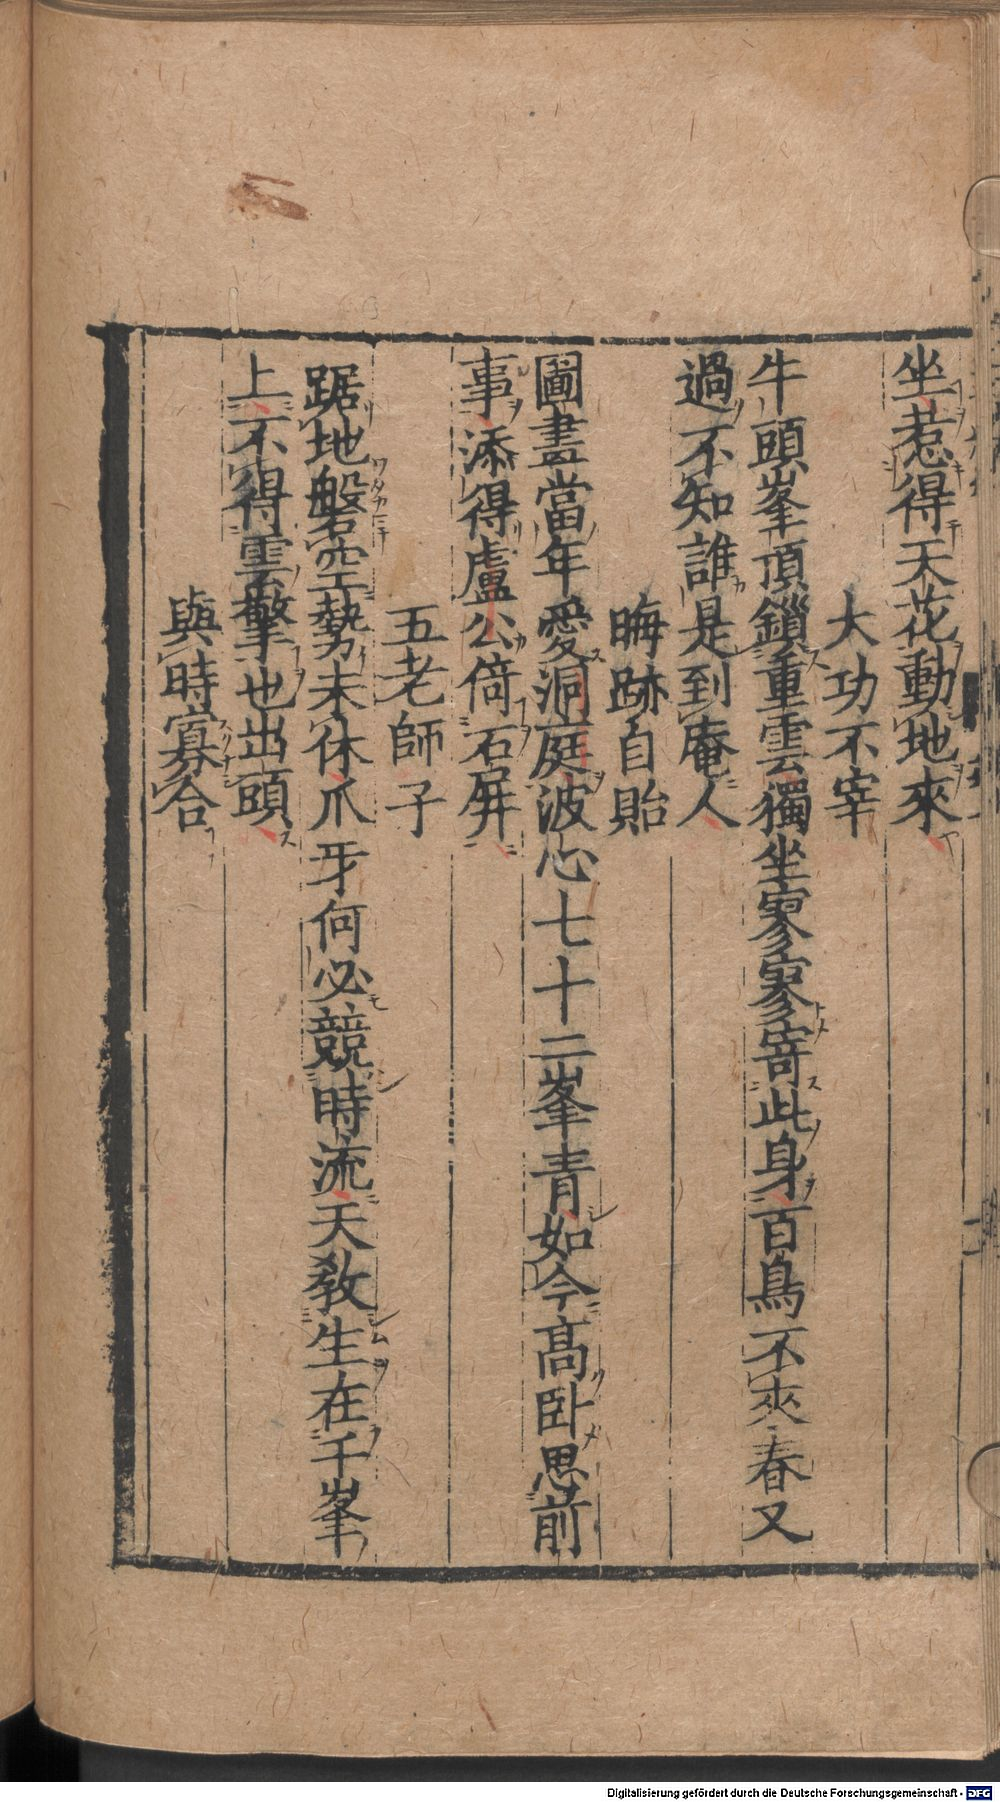 坐惹得天花動地來
大功不宰
牛頭峯頂鎖重雲獨坐寥寥寄此身百鳥不來春又
過不知誰是到庵人
晦跡自貽
圖畫當年愛洞庭波心七十二峯青如今高卧思前
事添得盧公倚石屏
五老師子
踞地盤空勢未休爪牙何必競時流天教生在千峯
上不得雲擎也出頭
與時寡合
Digitalisierung gefördert durch die Deutsche Forschungsgemeinschaft - DFG